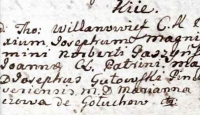 Kiie.
d. Tho: Willanowicz C. R. B
xium Josephum magni
mini Norberti Paszyn
Joanna CL. Patrini ma
D Josephus Gutowski Pin
veniensis, m. D. Marianna
czowa de Goluchow.